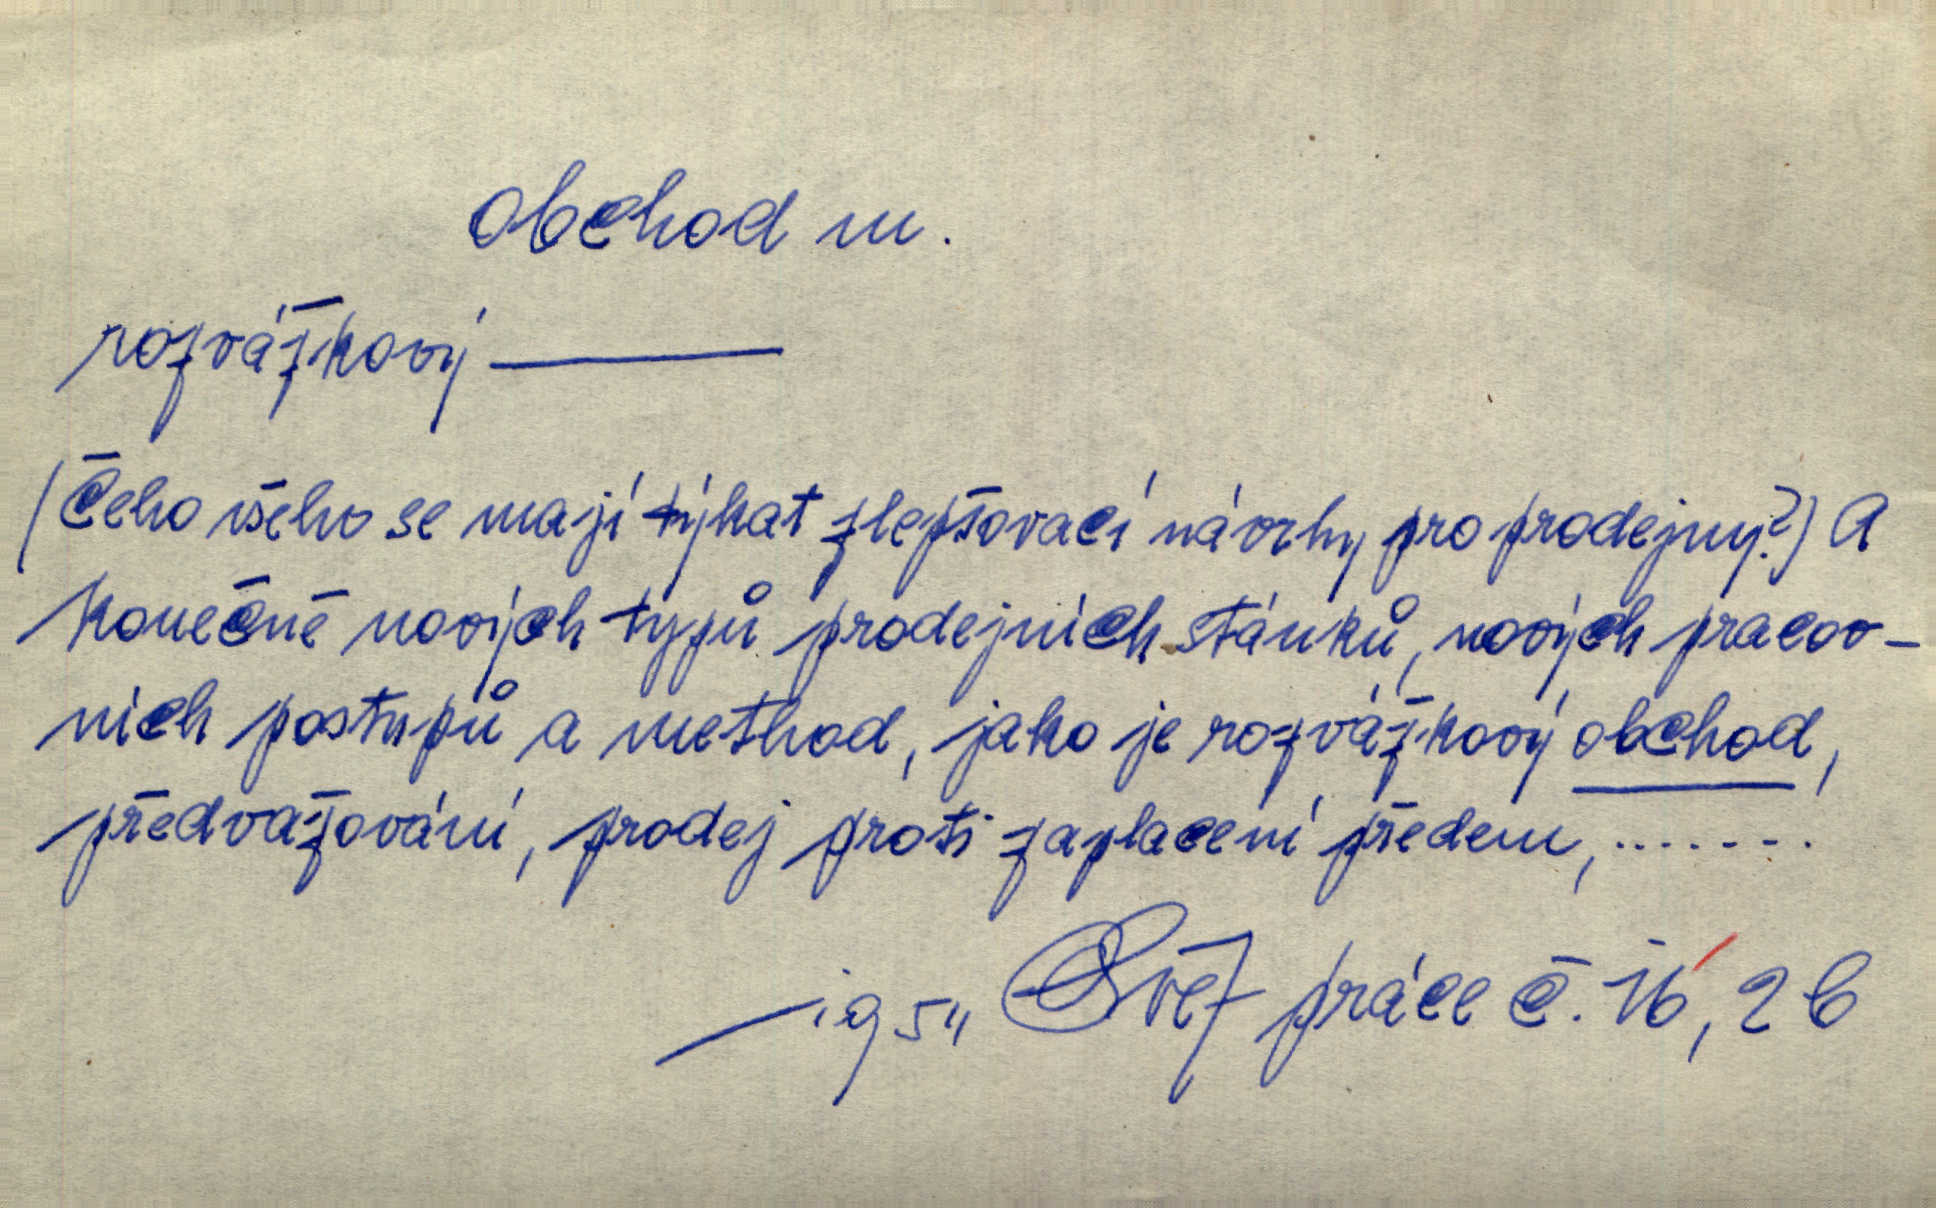 obchod m.
rozvážkový ———
(Čeho všeho se mají týkat zlepšovací návrhy pro prodejny?) A
konečně nových typů prodejních stánků, nových pracov-
ních postupů a method, jako je rozvážkový obchod,
předvažování, prodej proti zaplacení předem, .......
1954 Svět práce č. 16, 2b